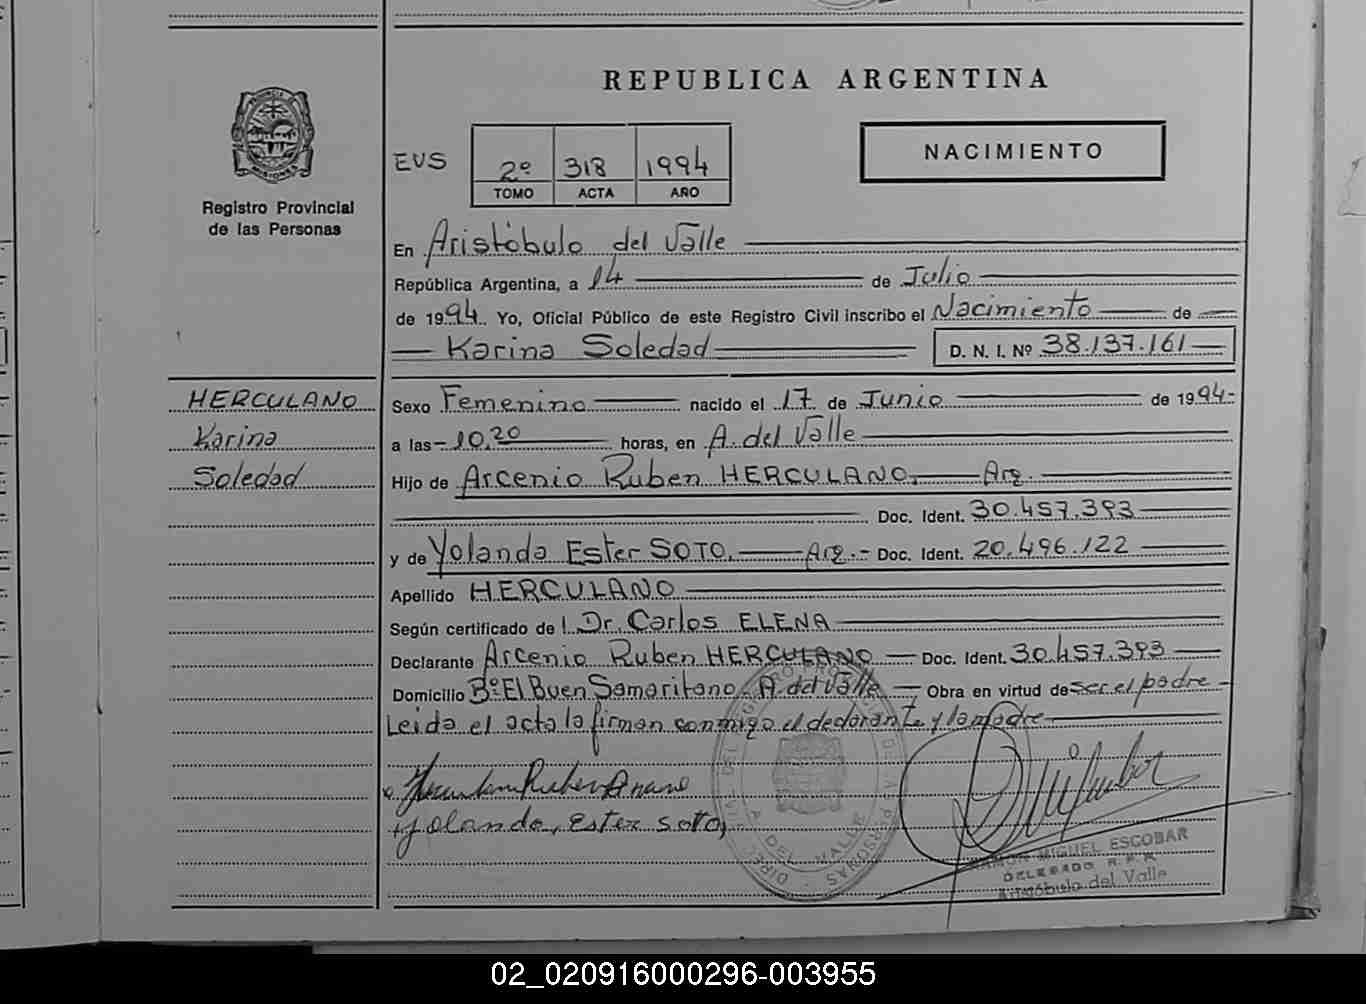 REPUBLICA ARGENTINA
PROVINCIA
MISIONES
Registro Provincial
de las Personas
EUS 2º 318 1994
TOMO ACTA AÑO
NACIMIENTO
En Aristóbulo del Valle
República Argentina, a 14 de Julio
de 1994 Yo, Oficial Público de este Registro Civil inscribo el Nacimiento de
Karina Soledad D. N. I. Nº 38.137.161
HERCULANO
Karina
Soledad
Sexo Femenino nacido el 17 de Junio de 1994-
a las 10,20 horas, en A. del Valle
Hijo de Arcenio Ruben HERCULANO, Arg.
Doc. Ident. 30.457.393
y de Yolanda Ester SOTO. Arg.- Doc. Ident. 20.496.122
Apellido HERCULANO
Según certificado de l Dr. Carlos ELENA
Declarante Arcenio Ruben HERCULANO Doc. Ident. 30.457.393
Domicilio Bº El Buen Samaritano. A. del Valle Obra en virtud de ser el padre
Leida el acta la firman conmigo el declarante y la madre
Yolanda, Ester Soto,
A. DEL VALLE
RAMON MIGUEL ESCOBAR
DELEGADO R.P.P.
Aristóbulo del Valle
02_020916000296-003955